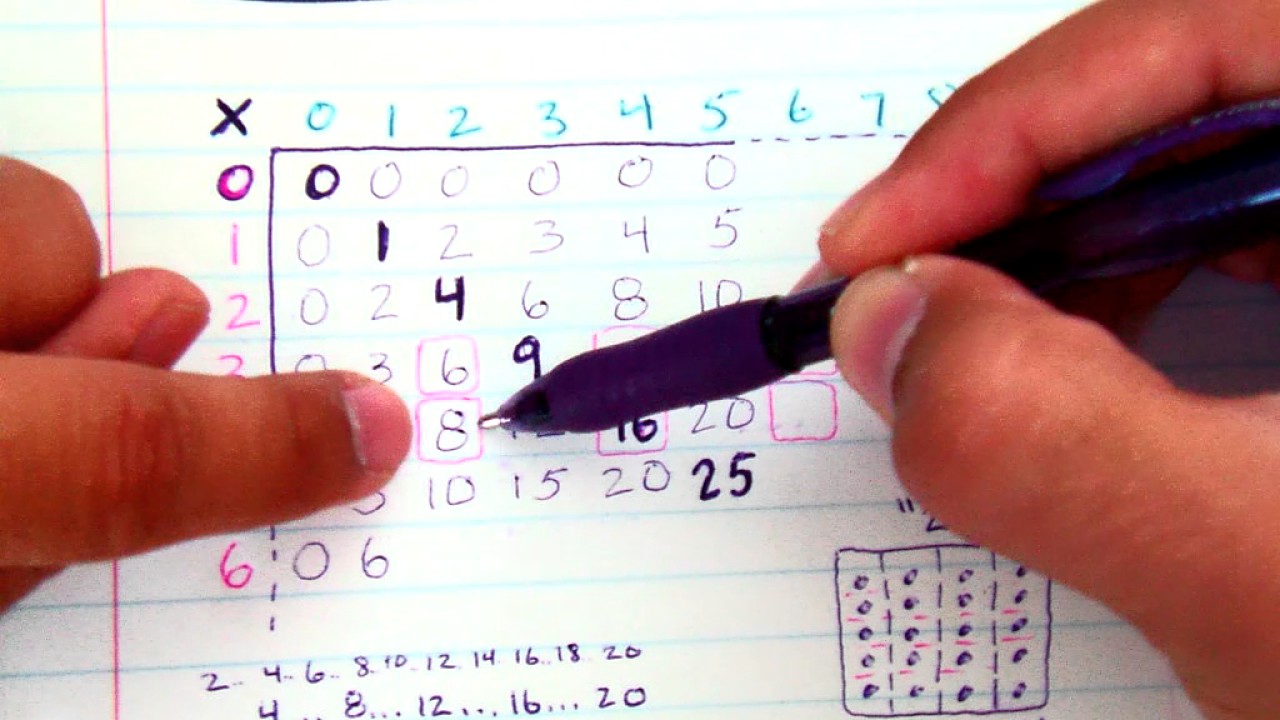 X 0 1 2 3 4 5 6 7
0 0 0 0 0 0 0
1 0 1 2 3 4 5
2 0 2 4 6 8 10
3 0 3 6 9
8 16 20
10 15 20 25
6 0 6
2.. 4.. 6.. 8.. 10.. 12.. 14.. 16.. 18.. 20
4... 8... 12... 16... 20